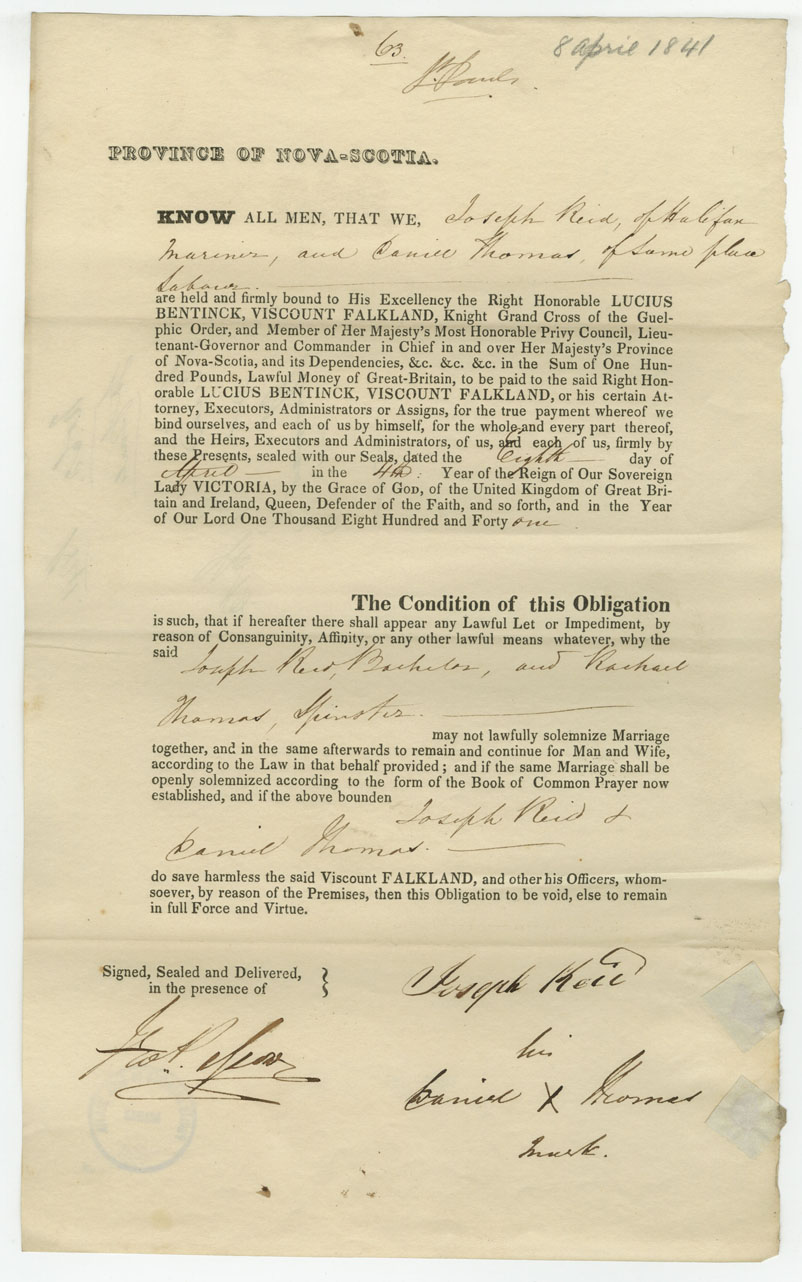 63.
8 April 1841
St. Pauls.
PROVINCE OF NOVA-SCOTIA.
KNOW ALL MEN, THAT WE, Joseph Reid, of Halifax
Mariner, and Daniel Thomas, of same place
Labourer.
are held and firmly bound to His Excellency the Right Honorable LUCIUS
BENTINCK, VISCOUNT FALKLAND, Knight Grand Cross of the Guel-
phic Order, and Member of Her Majesty's Most Honorable Privy Council, Lieu-
tenant-Governor and Commander in Chief in and over Her Majesty's Province
of Nova-Scotia, and its Dependencies, &c. &c. &c. in the Sum of One Hun-
dred Pounds, Lawful Money of Great-Britain, to be paid to the said Right Hon-
orable LUCIUS BENTINCK, VISCOUNT FALKLAND, or his certain At-
torney, Executors, Administrators or Assigns, for the true payment whereof we
bind ourselves, and each of us by himself, for the whole and every part thereof,
and the Heirs, Executors and Administrators, of us, and each of us, firmly by
these Presents, sealed with our Seals, dated the Eighth day of
April in the 4th. Year of the Reign of Our Sovereign
Lady VICTORIA, by the Grace of GOD, of the United Kingdom of Great Bri-
tain and Ireland, Queen, Defender of the Faith, and so forth, and in the Year
of Our Lord One Thousand Eight Hundred and Forty one
The Condition of this Obligation
is such, that if hereafter there shall appear any Lawful Let or Impediment, by
reason of Consanguinity, Affinity, or any other lawful means whatever, why the
said Joseph Reid, Bachelor, and Rachael
Thomas, Spinster.
may not lawfully solemnize Marriage
together, and in the same afterwards to remain and continue for Man and Wife,
according to the Law in that behalf provided; and if the same Marriage shall be
openly solemnized according to the form of the Book of Common Prayer now
established, and if the above bounden
Joseph Reid &
Daniel Thomas.
do save harmless the said Viscount FALKLAND, and other his Officers, whom-
soever, by reason of the Premises, then this Obligation to be void, else to remain
in full Force and Virtue.
Signed, Sealed and Delivered,
in the presence of
Joseph Reid
his
Daniel X Thomas
mark.